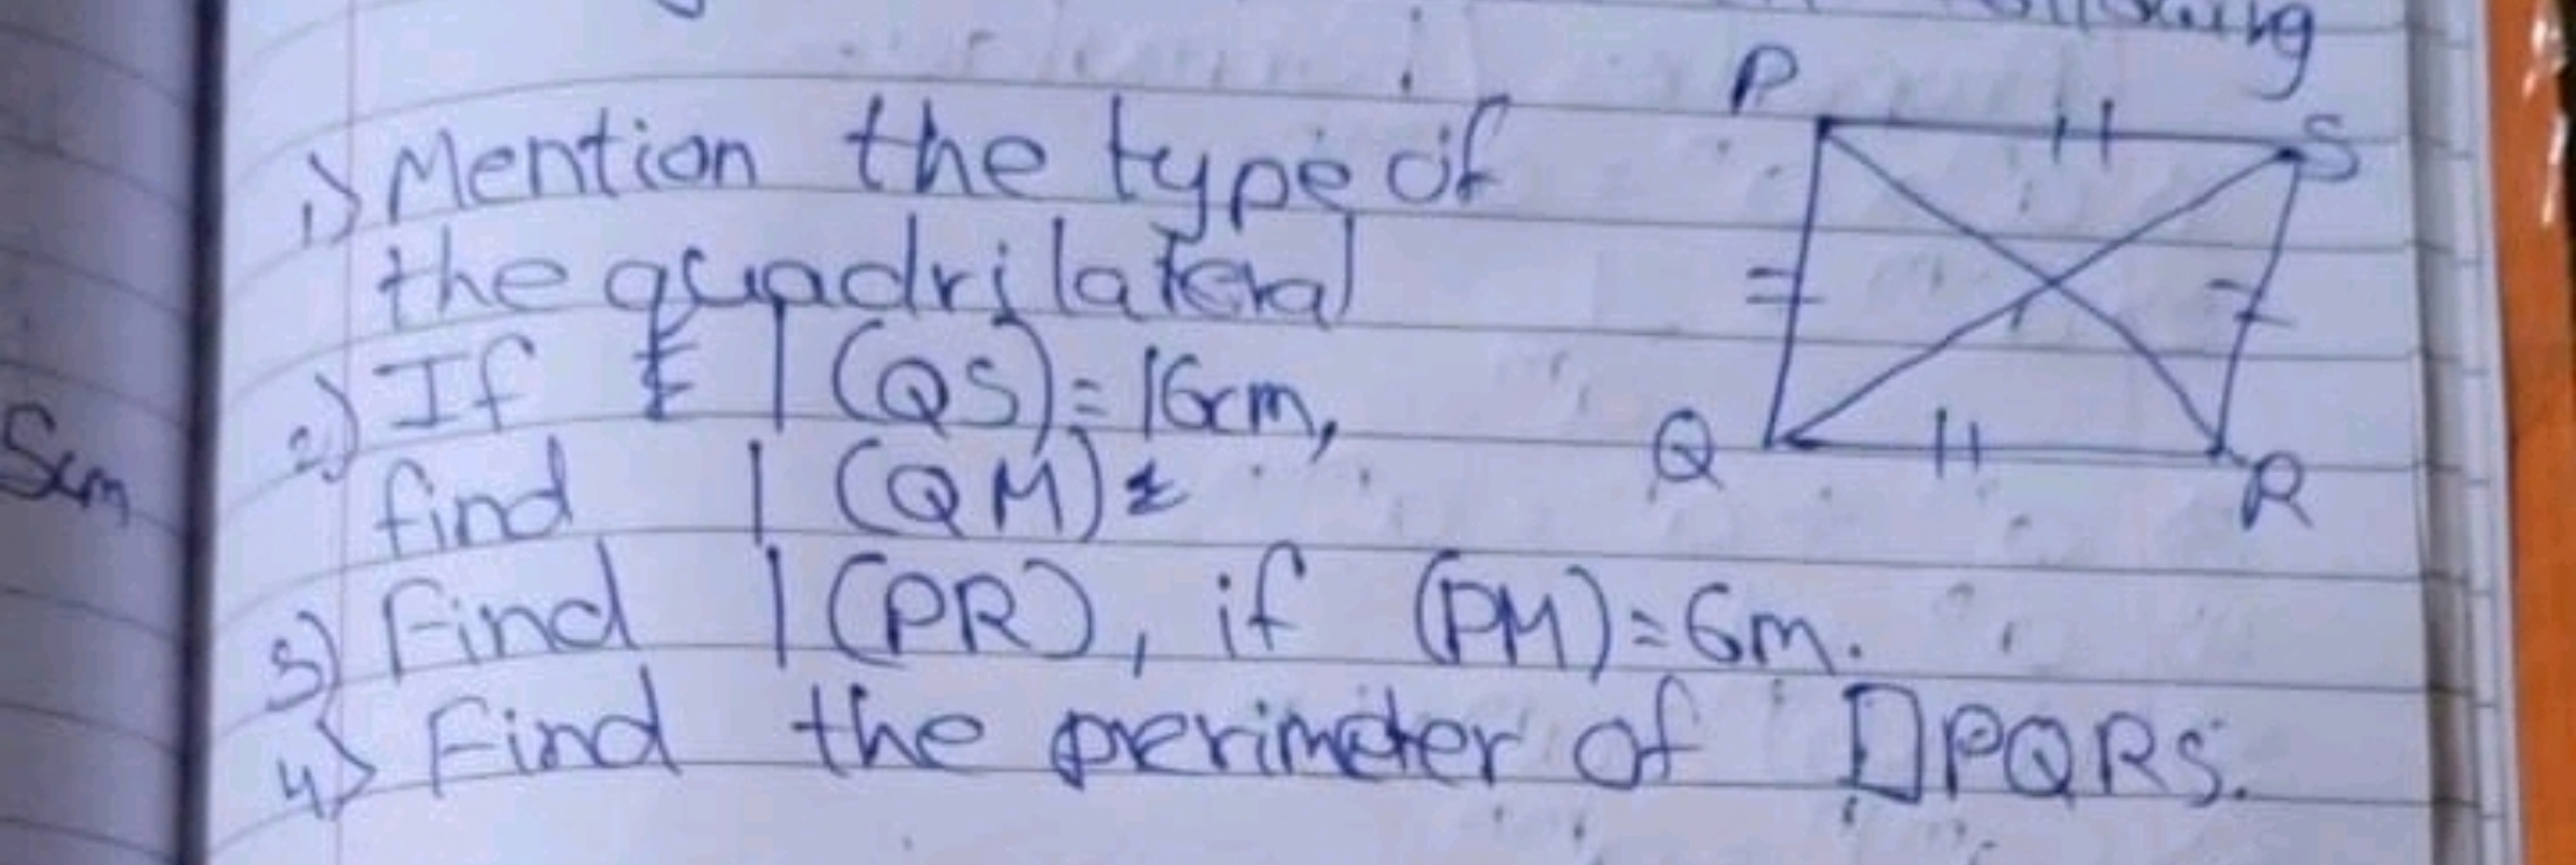 following
1) Mention the type of
P
S
the quadrilateral
2) If l (QS) = 16cm,
5cm
Q
R
find l (QM)
3) Find l (PR), if (PM) = 6m.
4) Find the perimeter of □PQRS.